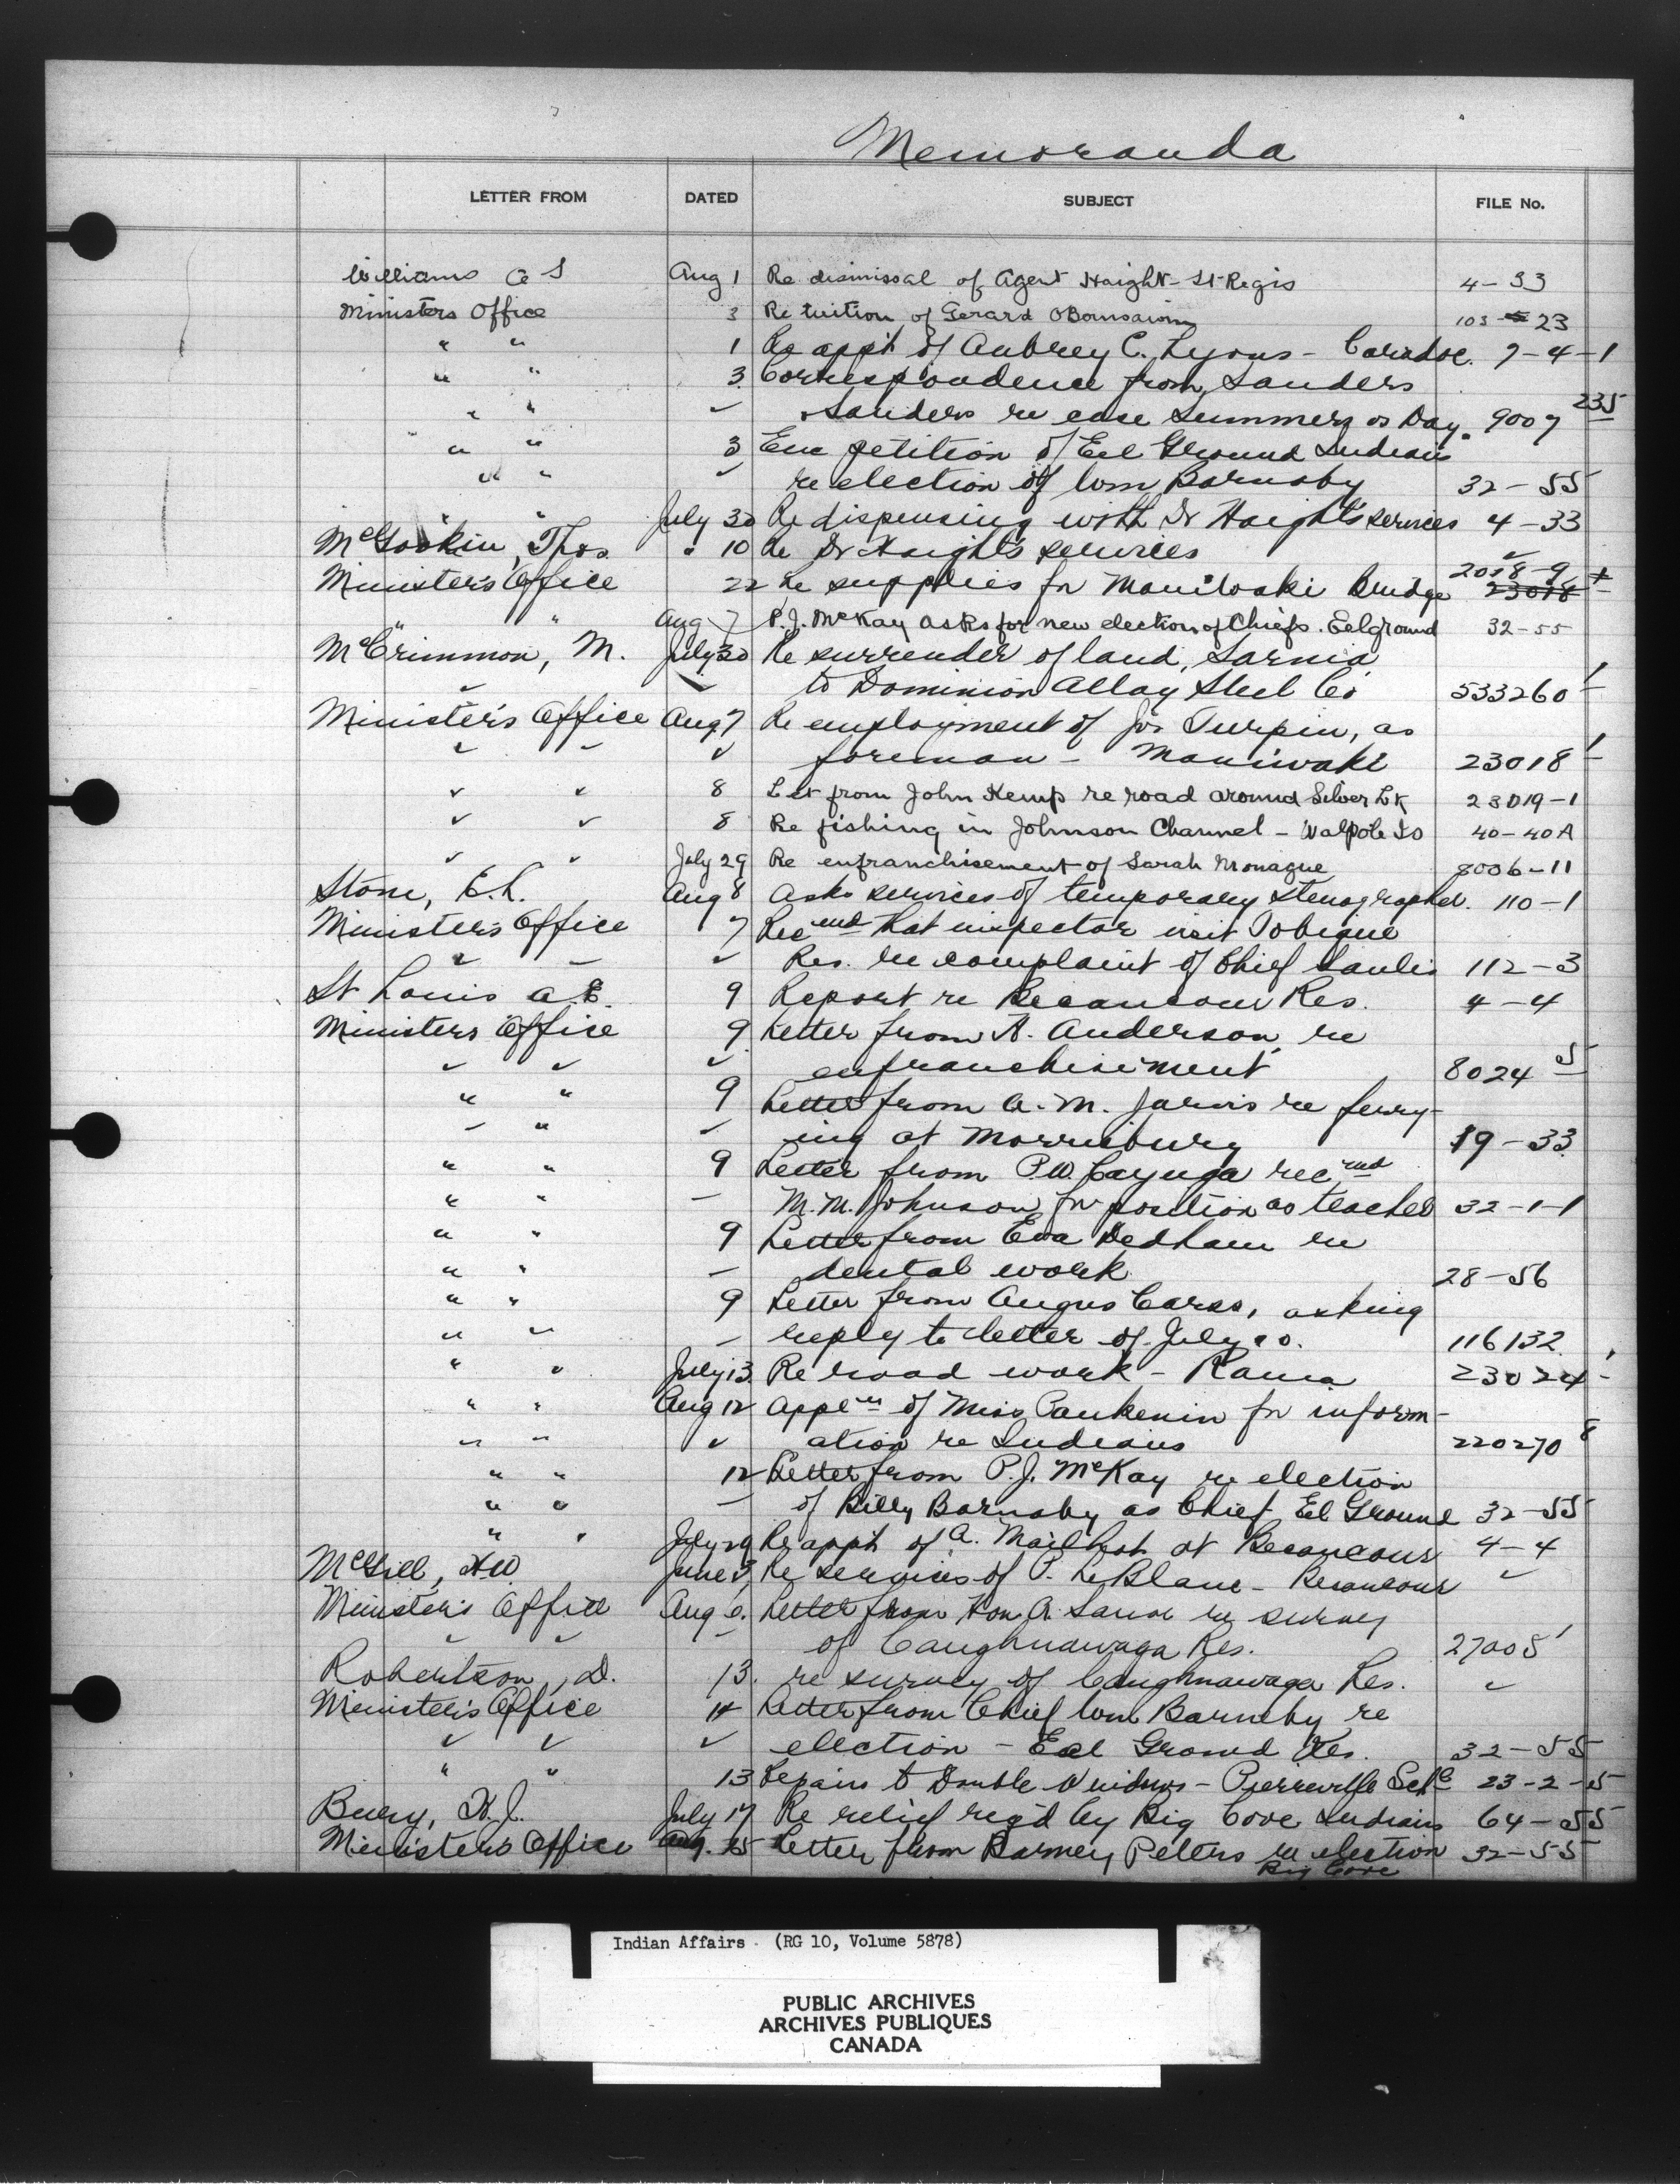 Memoranda
LETTER FROM DATED SUBJECT FILE No.
Williams A S Aug 1 Re dismissal of Agent Haight - St Regis 4-33
Ministers Office 3 Re tuition of Gerard 103-23
" " 1 Re appt of Aubrey C. Lyons - Caradoc. 7-4-1
" " 3 Correspondence from Sanders
" " ✓ Sanders re case Summers vs Day. 9007 235
" " 3 Enc petition of Eel Ground Indians
" " ✓ re election of Wm Barnaby 32-55
" " July 30 Re dispensing with Dr Haight's services 4-33
McGookin, Thos. " 10 Re Dr Haights services ✓
Minister's Office 22 Re supplies for Manitoaki Bridge 2018-9 23018
" " Aug 7 P.J. McKay asks for new election of Chiefs. Eelground 32-55
McCrimmon, M. July 30 Re surrender of land, Sarnia
✓ ✓ to Dominion Alloy Steel Co 533260 1
Minister's Office Aug 7 Re employment of Jos Turpin, as
✓ ✓ ✓ foreman - Maniwaki 23018 1
✓ ✓ 8 Let from John Kemp re road around Silver Lk 23019-1
✓ ✓ 8 Re fishing in Johnson Channel - Walpole Is 40-40A
✓ ✓ July 29 Re enfranchisement of Sarah Monague 8006-11
Stone, E.L. Aug 8 Asks services of temporary stenographer. 110-1
Minister's Office 7 Recmd that inspector visit Tobique
✓ ✓ Res. re complaint of Chief Saulis 112-3
St Louis A.E. 9 Report re Becancour Res. 4-4
Ministers Office 9 Letter from A. Anderson re
✓ ✓ ✓ enfranchisement 8024 5
" " 9 Letter from A. M. Jarvis re ferry-
" " ✓ ing at Morrisburg 19-33
" " 9 Letter from P.W. Cayuga recmd
" " - M. M. Johnson for position as teacher 32-1-1
" " 9 Letter from Eva Dedham re
" " - dental work 28-56
" " 9 Letter from Angus Carss, asking
" " - reply to letter of July 10. 116132
" " July 13 Re road work - Rama 23024 1
" " Aug 12 Appln of Miss Pankenin for inform-
" " ✓ ation re Indians 220270 8
" " 12 Letter from P.J. McKay re election
" " - of Billy Barnaby as Chief Eel Ground 32-55
" " July 29 Re appt of A. Mailhot at Becancour 4-4
McGill, HW June Re services of P. LeBlanc - Becancour ✓
Minister's Office Aug 6. Letter from Hon. A. Sauve re survey
✓ ✓ - of Caughnawaga Res. 27008 1
Robertson, D. 13. re survey of Caughnawaga Res. ✓
Minister's Office 14 Letter from Chief Wm Barnaby re
✓ ✓ ✓ election - Eel Ground Res. 32-55
" " 13 Repairs to Double Windows - Pierreville Schl 23-2-5
Bury, H.J. July 17 Re relief req'd by Big Cove Indians 64-55
Ministers Office Aug. 15 Letter from Barney Peters re election 32-55
Big Cove
Indian Affairs. (RG 10, Volume 5878)
PUBLIC ARCHIVES
ARCHIVES PUBLIQUES
CANADA